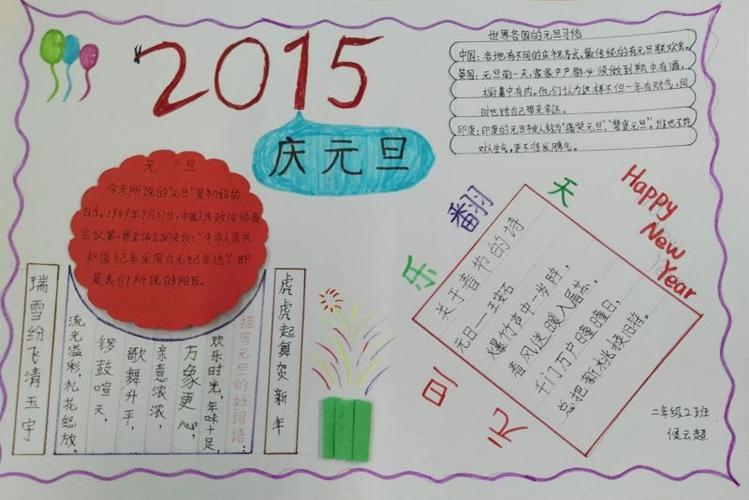 2015
庆元旦
世界各国的元旦习俗
中国：各地有不同的庆祝方式，最传统的有元旦联欢会。
英国：元旦前一天，家家户户都必须做到瓶中有酒，
橱中有肉。他们认为这样不但一年有财气，同
时也给自己带来幸运。
印度：印度的元旦被人称为“痛哭元旦”“禁食元旦”。谁也不许
对人生气，更不准发脾气。
元旦
今天所说的“元旦”是初始的
日子。1949年9月27日，中国人民政治协商
会议第一界全体会议决议：“中华人民共
和国纪年采用公元纪年法”。即
是我们所说的阳历。
瑞雪纷飞清玉宇
虎虎起舞贺新年
描写元旦的好词语：
欢乐时光，年味十足，
万象更心，
亲意浓浓，
歌舞升平，
锣鼓喧天，
流光溢彩，礼花怒放，
乐翻天
元旦
Happy
New
Year
关于春节的诗
元日——王安石
爆竹声中一岁除，
春风送暖入屠苏。
千门万户曈曈日，
总把新桃换旧符。
二年级2班
侯云超